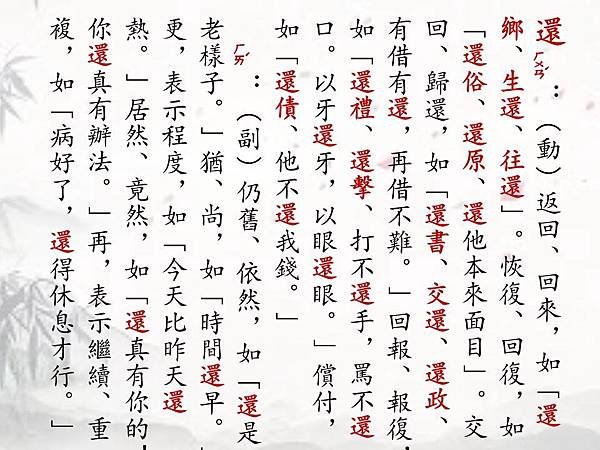 還ㄏㄨㄢˊ：（動）返回、回來，如「還
鄉、生還、往還」。恢復、回復，如
「還俗、還原、還他本來面目」。交
回、歸還，如「還書、交還、還政、
有借有還，再借不難。」回報、報復，
如「還禮、還擊、打不還手，罵不還
口。以牙還牙，以眼還眼。」償付，
如「還債、他不還我錢。」
ㄏㄞˊ：（副）仍舊、依然，如「還是
老樣子。」猶、尚，如「時間還早。」
更，表示程度，如「今天比昨天還
熱。」居然、竟然，如「還真有你的！
你還真有辦法。」再，表示繼續、重
複，如「病好了，還得休息才行。」